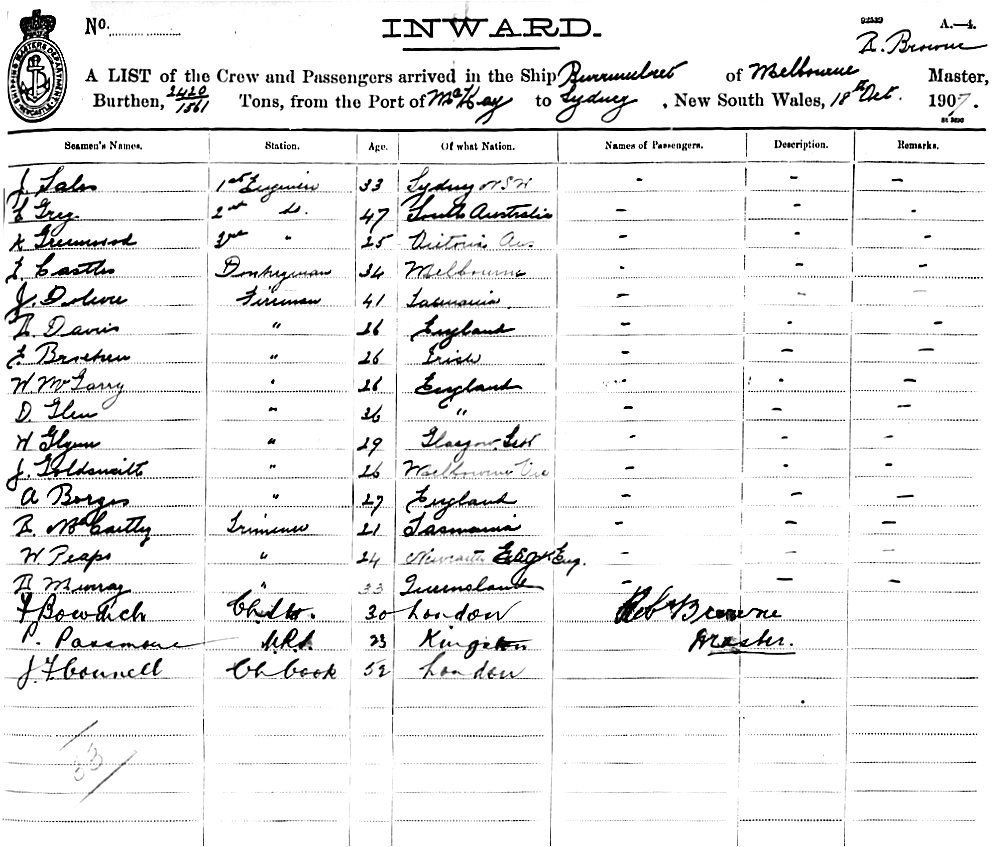 No.
INWARD.
A.—4.
R. Browne
A LIST of the Crew and Passengers arrived in the Ship Burrumbeet of Melbourne Master,
Burthen, 2420/1561 Tons, from the Port of McKay to Sydney, New South Wales, 18th Oct. 1907.
Seamen's Names. Station. Age. Of what Nation. Names of Passengers. Description. Remarks.
1st Engineer 33 Sydney NSW - - -
E Greg 2nd do. 47 South Australia - - -
K Greenwood 3rd " 25 Victoria Aus - - -
Castles Donkeyman 34 Melbourne - - -
J. Fireman 41 Tasmania - - -
R. Davis " 26 England - - -
" 26 Irish - - -
W McGarry " 26 England - - -
D. Glen " 36 " - - -
W Glynn " 29 Glasgow Scot - - -
J. Goldsmith " 26 Melbourne Vic - - -
A Borges " 27 England - - -
R. McCartly Trimmer 21 Tasmania - - -
W Peaps " 24 Newcastle Eng. - - -
R Murray " 33 Queensland - - -
F Bowdich Ch. Stw. 30 London Robt Browne
P. Passmore 23 Kingston Master.
J. F Connell Ch Cook 52 London
33